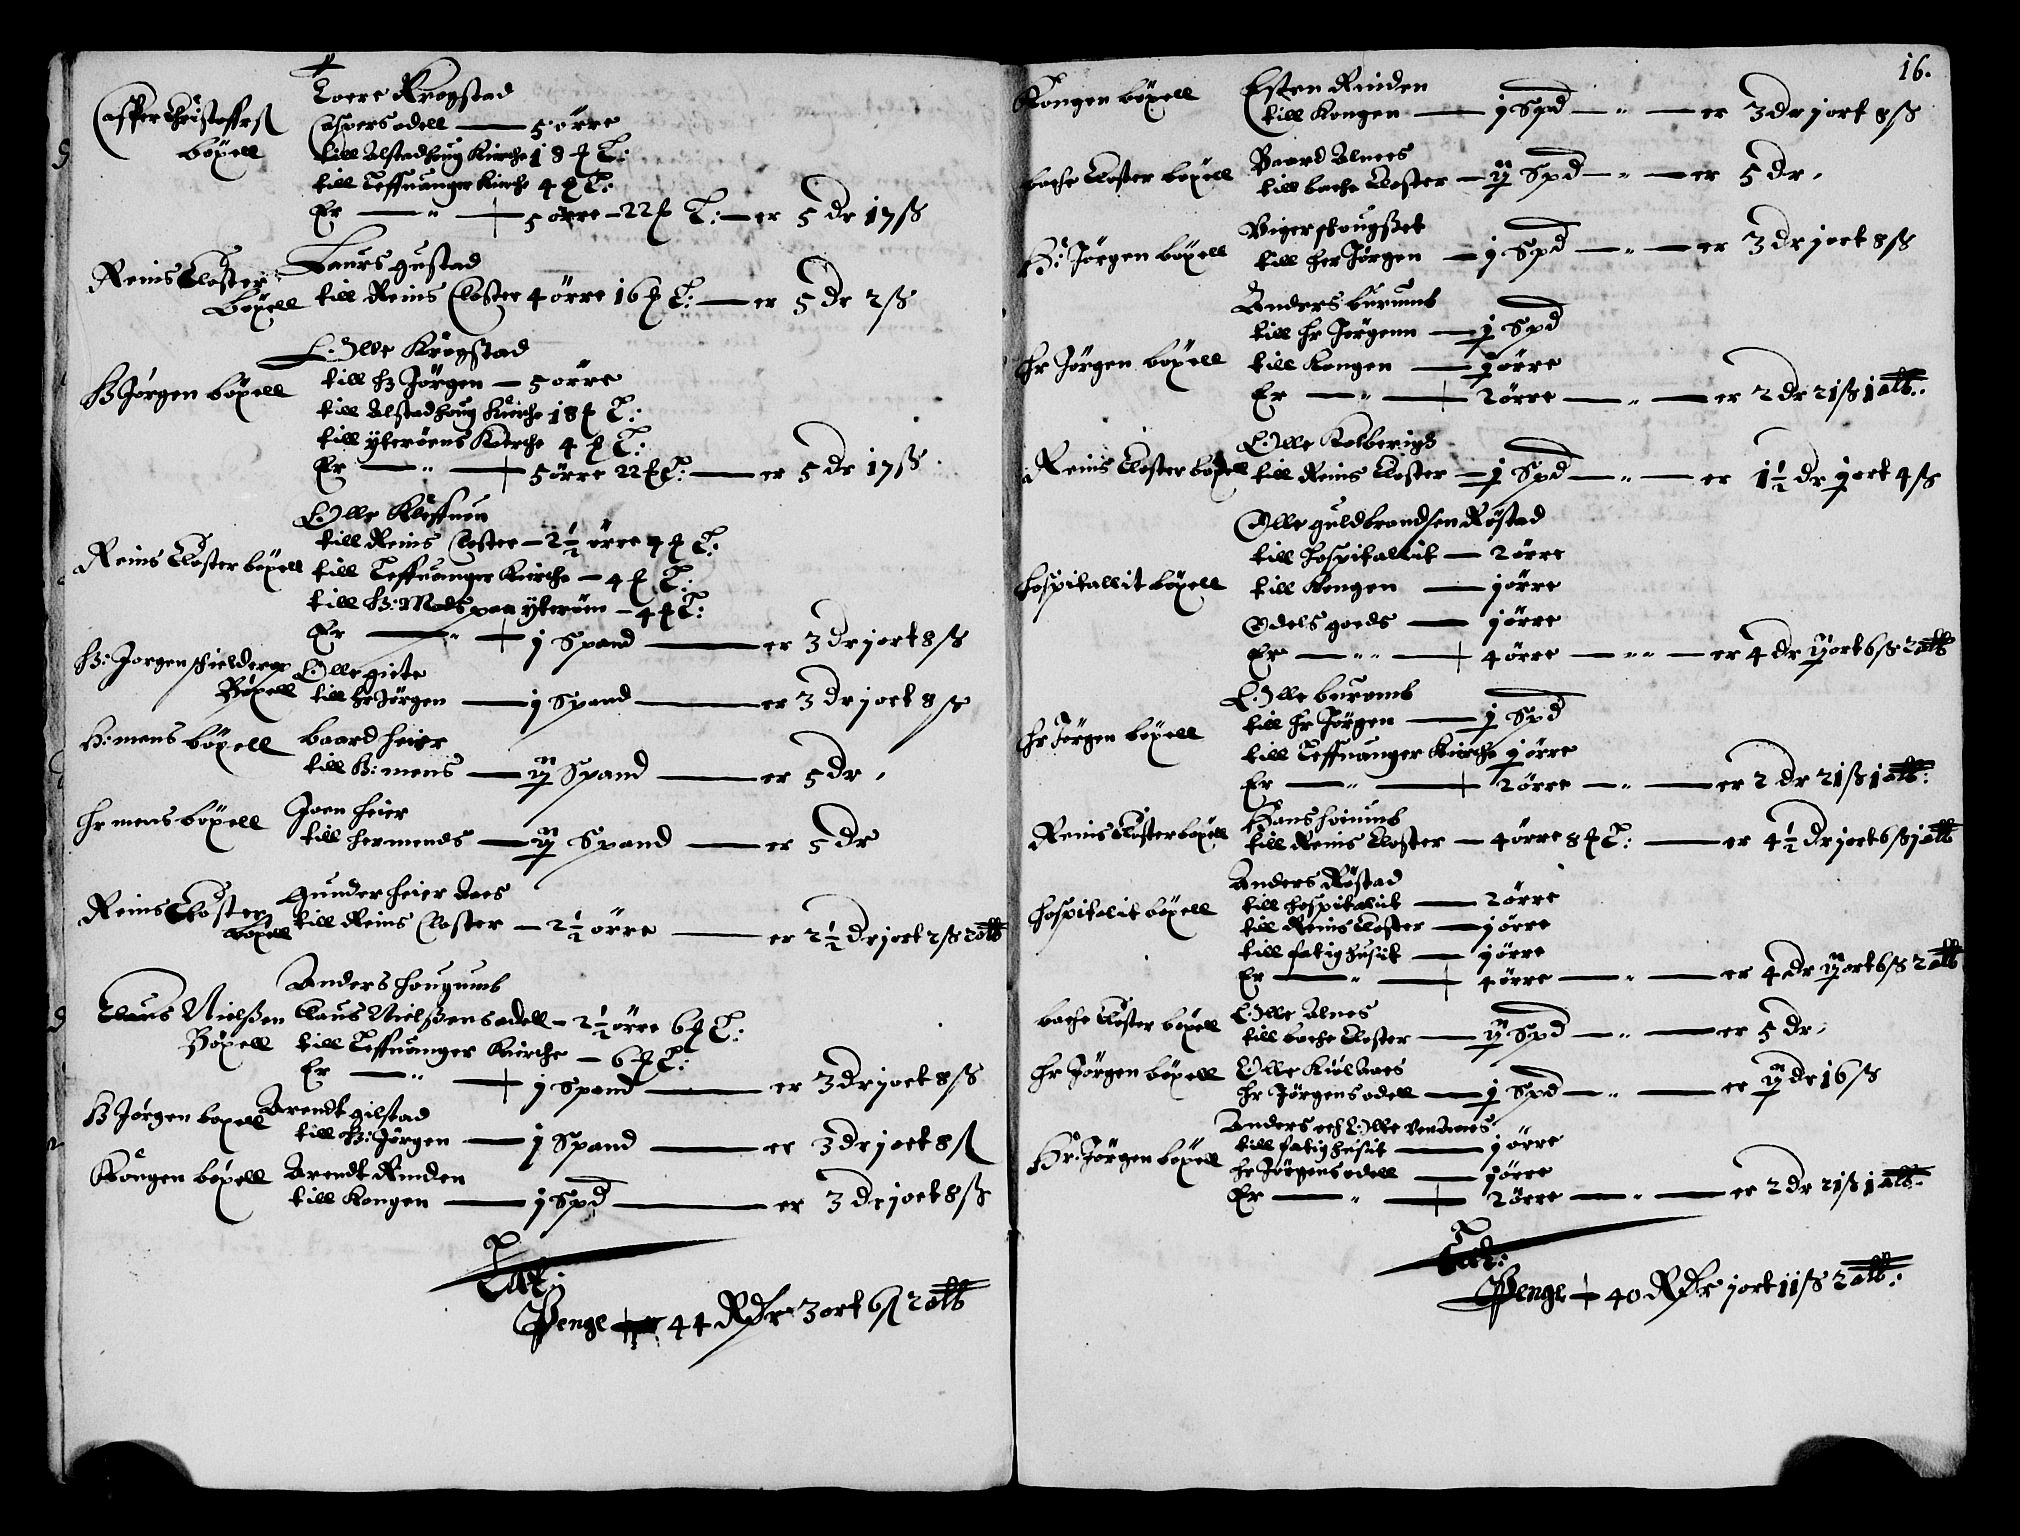 Casper Christoffers
böxell
Toere Krogstad
Caspers odell — 5 örre
till Alstadhoug Kirche 18 ℔ T:
till Teffuanger Kirche 4 ℔ T:
Er — „ — 5 örre - 22 ℔ T: — er 5 dr 17 ß
Reins Closter
böxell
Laurs gustad
till Reins Closter 4 örre 16 ℔ T: — er 5 dr 2 ß
H Jörgen böxell
Olle Krogstad
till H Jörgen — 5 örre
till Alstadhoug Kirche 18 ℔ T:
till yteröens Kirche 4 ℔ T:
Er — „ — 5 örre 22 ℔ T: — er 5 dr 17 ß
Reins Closter böxell
Olle Kleffuen
till Reins Closter — 2½ örre 7 ℔ T:
till Teffuanger Kirche — 4 ℔ T:
till H: Mads paa yteröen — 4 ℔ T:
Er — „ — j Spand — er 3 dr j ort 8 ß
H: Jorgen schielderop
Böxell
Olle giete
till hr Jörgen — j Spand — er 3 dr j ort 8 ß
H: mens böxell
baard heier
till H: mens — ij Spand — er 5 dr
hr mens böxell
Joen heier
till her mends — ij Spand — er 5 dr
Reins Closter
böxell
Gunder heier Aaes
till Reins Closter — 2½ örre — er 2½ dr j ort 2 ß 2 alb
Claus Nielßen
Böxell
Anders hougumb
Claus Nielßens odell — 2½ örre 6 ℔ T:
till Teffuanger Kirche — 6 ℔ T:
Er — „ — j Spand — er 3 dr j ort 8 ß
H Jörgen böxell
Arendt gilstad
till H: Jörgen — j Spand — er 3 dr j ort 8 ß
Kongen böxell
Arendt Rinden
till Kongen — j Spd — er 3 dr j ort 8 ß
Lat:
Penge — 44 Rdr 3 ort 6 ß 2 alb
16.
Kongen böxell
Esten Rinden
till Kongen — j Spd — „ — er 3 dr j ort 8 ß
bache Closter böxell
Baard Alnees
till bache Closter — ij Spd — „ — er 5 dr
H: Jörgen böxell
Viger skougßet
till her Jörgen — j Spd — „ — er 3 dr j ort 8 ß
hr Jörgen böxell
Anders burumb
till hr Jörgenn — j Spd
till Kongen — j örre
Er — „ — 2 örre — „ — er 2 dr 21 ß 1 alb:
Reins Closter böxell
Olle Kolberig
till Reins Closter — j Spd — „ — er 1½ dr j ort 4 ß
hospitallit böxell
Olle guldbrandsen Röstad
till hospitallit — 2 örre
till Kongen — j örre
Odels goeds — j örre
Er — „ „ — 4 örre — „ „ — er 4 dr ij ort 6 ß 2 alb
hr Jörgen böxell
Olle buromb
till hr Jörgen — j Spd
till Teffuanger Kirche j örre
Er — „ — 2 örre — „ — er 2 dr 21 ß 1 alb:
Reins Closter böxell
Hans hoiumb
till Reins Closter — 4 örre 8 ℔ T: — er 4½ dr j ort 6 ß j alb
hospitalit böxell
Anders Röstad
till hospitalit — 2 örre
till Reins Closter — j örre
till fatighusit — j örre
Er — „ — 4 örre — „ — er 4 dr ij ort 6 ß 2 alb
bache Closter böxell
Olle Alnes
till bache Closter — ij Spd — „ — er 5 dr
hr Jörgen böxell
Olle Kulaaes
hr Jörgens odell — j Spd — „ — er ij dr 16 ß
Hr: Jörgen böxell
Anders och Olle
till fatighusit — j örre
hr Jörgens odell — j örre
Er — „ — 2 örre — „ — er 2 dr 21 ß 1 alb:
Lat:
Penge — 40 Rdr j ort 11 ß 2 alb: